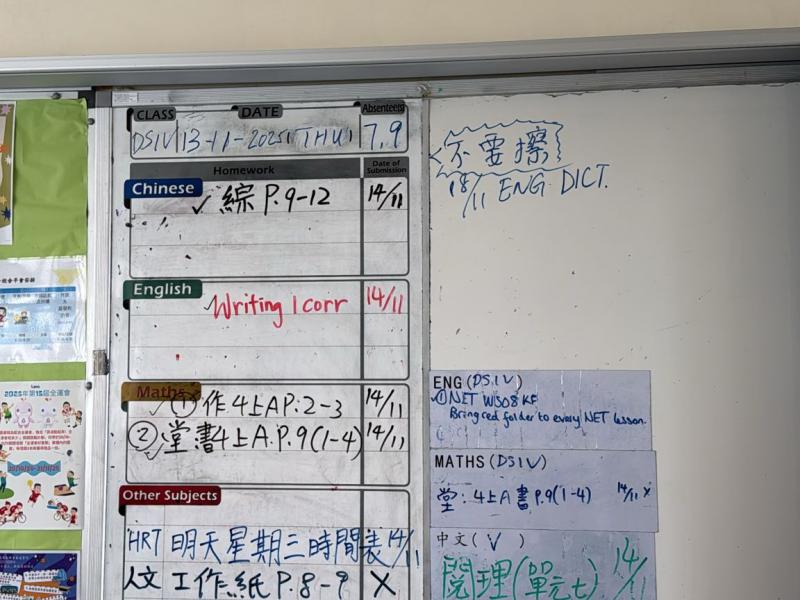 CLASS DATE Absentee(s)
DS1V 13-11-2025 THU 7,9
Homework Date of Submission
Chinese
✓ 綜 P.9-12 14/11
English
✓ Writing 1 corr 14/11
Maths
✓ ① 作 4上A P:2-3 14/11
② 堂書4上A.P.9(1-4) 14/11
Other Subjects
HRT 明天星期三時間表 14/11
人文 工作紙 P.8-9 X
不要擦
18/11 ENG DICT.
ENG (DS1V)
✓① NET WS08 KF
Bring red folder to every NET lesson.
MATHS (DS1V)
堂:4上A 書 P.9(1-4) 14/11 X
中文 (V)
閱理(單元七) 14/11
2025年第15屆全運會